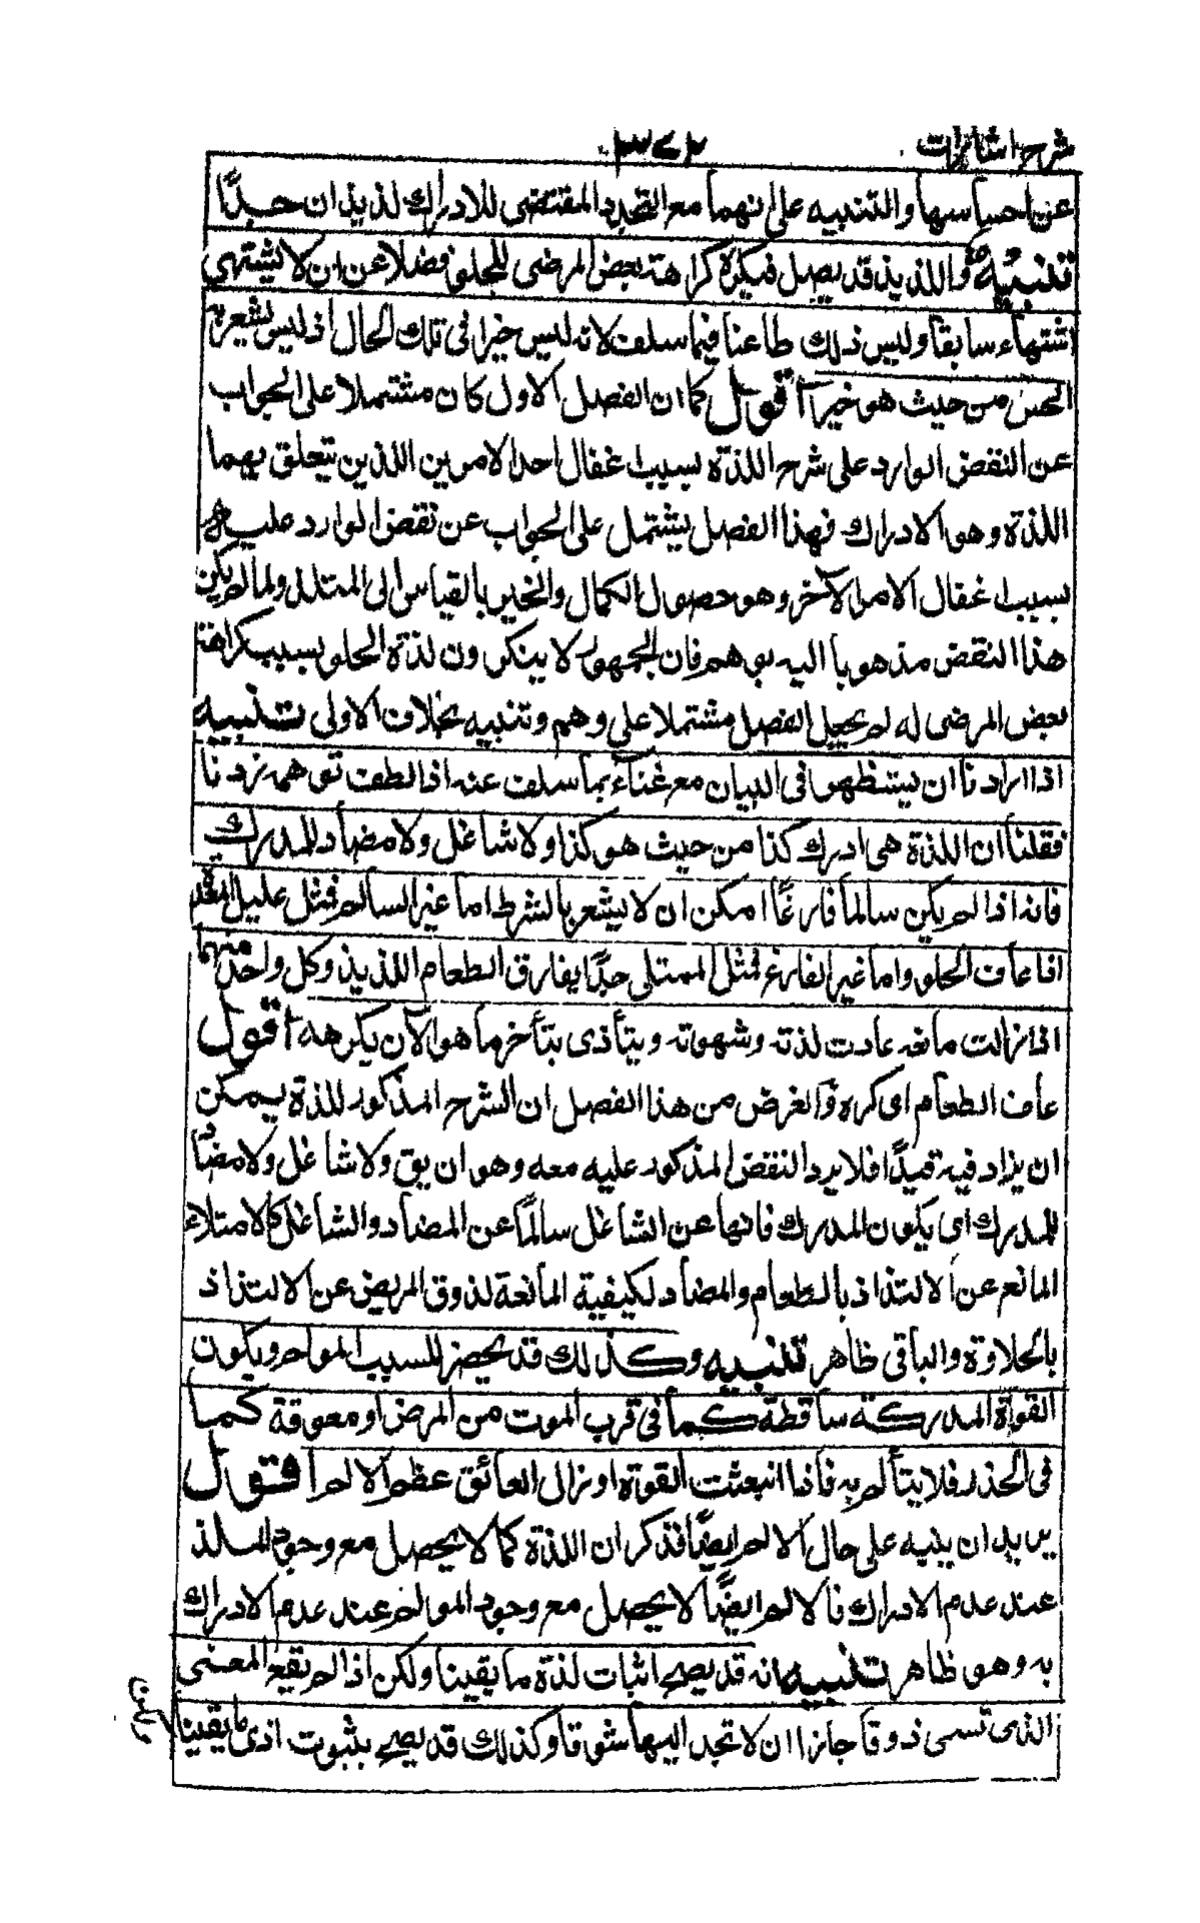 شرح اشارات
٣٧٢
عن احساسها والتنبيه على انهما مع التجدد المقتضى للادراك لذيذان جدًّا
تنبيه واللذيذ قد يصل فيكره كراهة بعض المرضى للحلو فضلا عن ان لا يشتهي
اشتهاء سابقا وليس ذلك طاعنا فيما سلف لانه ليس خيرا فى تلك الحال اذ ليس يشعر به
الحس من حيث هو خير أقول كما ان الفصل الاول كان مشتملا على الجواب
عن النقض الوارد على شرح اللذة بسبب اغفال احد الامرين اللذين تتعلق بهما
اللذة وهو الادراك فهذا الفصل يشتمل على الجواب عن نقض الوارد عليه
بسبب اغفال الامر الآخر وهو حصول الكمال والخير بالقياس الى المتلذ ولما لم يكن
هذا النقض مذهوبا اليه بوهم فان الجمهور لا ينكرون لذة الحلو بسبب كراهة
بعض المرضى له لم يجعل الفصل مشتملا على وهم وتنبيه بخلاف الاولى تنبيه
اذا اردنا ان نستظهر فى البيان مع غناء بما سلف عنه اذا لطف توهمه زدنا
فقلنا ان اللذة هى ادراك كذا من حيث هو كذا ولا شاغل ولا مضاد للمدرك
فانه اذا لم يكن سالما فارغًا امكن ان لا يشعر بالشرط اما غير السالم فمثل عليل المعدة
اذا عاف الحلو واما غير الفارغ فمثل الممتلى جدًّا يفارق الطعام اللذيذ وكل واحد منهما
اذا زالت مانعه عادت لذته وشهوته ويتأذى بتأخر ما هو الآن يكرهه أقول
عاف الطعام اى كره والغرض من هذا الفصل ان الشرح المذكور للذة يمكن
ان يزاد فيه قيدًا فلا يرد النقض المذكور عليه معه وهو ان يق ولا شاغل ولا مضاد
للمدرك اى يكون المدرك فانها عن الشاغل سالمًا عن المضاد والشاغل كالامتلاء
المانع عن الالتذاذ بالطعام والمضاد لكيفية المانعة لذوق المريض عن الالتذاذ
بالحلاوة والباقى ظاهر تنبيه وكذلك قد يحضر للسبب المولم ويكون
القوة المدركة ساقطة كما فى قرب الموت من المرض او معوقة كما
فى الخدر فلا يتألم به فاذا انبعثت القوة او زال العائق عظم الالم أقول
يريد ان ينبه على حال الالم ايضًا فذكر ان اللذة كما لا يحصل مع وجود الملذ
عند عدم الادراك فالالم ايضًا لا يحصل مع وجود المولم عند عدم الادراك
به وهو ظاهر تنبيه انه قد يصح اثبات لذة ما يقينا ولكن اذا لم يقع المعنى
الذى تسمى ذوقا جاز ان لا تجد اليها شوقا وكذلك قد يصح بثبوت اذى ما يقينا
ولكن